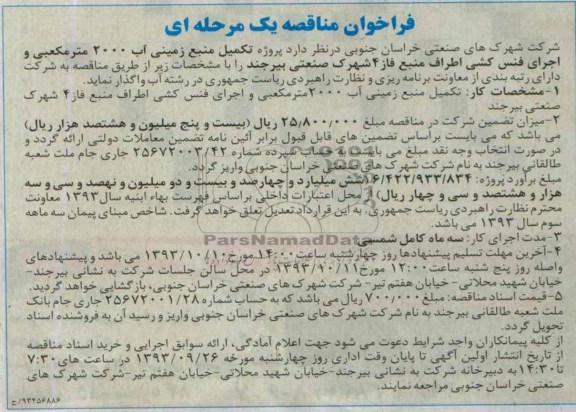 فراخوان مناقصه یک مرحله ای
شرکت شهرک های صنعتی خراسان جنوبی درنظر دارد پروژه تکمیل منبع زمینی آب ۲۰۰۰ مترمکعبی و
اجرای فنس کشی اطراف منبع فاز۴شهرک صنعتی بیرجند را با مشخصات زیر از طریق مناقصه به شرکت
دارای رتبه بندی از معاونت برنامه ریزی و نظارت راهبردی ریاست جمهوری در رشته آب واگذار نماید.
۱-مشخصات کار: تکمیل منبع زمینی آب ۲۰۰۰مترمکعبی و اجرای فنس کشی اطراف منبع فاز۴ شهرک
صنعتی بیرجند
۲-میزان تضمین شرکت در مناقصه مبلغ ۲۵٫۸۰۰٫۰۰۰ ریال (بیست و پنج میلیون و هشتصد هزار ریال)
می باشد که می بایست براساس تضمین های قابل قبول برابر آئین نامه تضمین معاملات دولتی ارائه گردد و
در صورت انتخاب وجه نقد مبلغ می بایست به حساب سپرده شماره ۲۵۶۷۲۰۰۳/۴۲ جاری جام ملت شعبه
طالقانی بیرجند به نام شرکت شهرک های صنعتی خراسان جنوبی واریز گردد.
مبلغ برآورد پروژه: ۶/۴۲۲/۹۳۳/۸۳۴(شش میلیارد و چهارصد و بیست و دو میلیون و نهصد و سی و سه
هزار و هشتصد و سی و چهار ریال) از محل اعتبارات داخلی براساس فهرست بهاء ابنیه سال۱۳۹۳ معاونت
محترم نظارت راهبردی ریاست جمهوری، به این قرارداد تعدیل تعلق خواهد گرفت. شاخص مبنای پیمان سه ماهه
سوم سال ۱۳۹۳ می باشد.
۳-مدت اجرای کار: سه ماه کامل شمسی
ParsNamadData
۴-آخرین مهلت تسلیم پیشنهادها روز چهارشنبه ساعت ۱۴:۰۰ مورخ ۱۳۹۳/۱۰/۱۰ می باشد و پیشنهادهای
واصله روز پنج شنبه ساعت ۱۲:۰۰ مورخ ۱۳۹۳/۱۰/۱۱ در محل سالن جلسات شرکت به نشانی بیرجند-
خیابان شهید محلاتی- خیابان هفتم تیر- شرکت شهرک های صنعتی خراسان جنوبی، بازگشایی خواهد گردید.
۵-قیمت اسناد مناقصه: مبلغ ۷۰۰/۰۰۰ ریال می باشد که به حساب شماره ۲۵۶۷۲۰۰۱/۲۸ جاری جام بانک
ملت شعبه طالقانی بیرجند به نام شرکت شهرک های صنعتی خراسان جنوبی واریز و رسید آن به فروشنده اسناد
تحویل گردد.
از کلیه پیمانکاران واجد شرایط دعوت می شود جهت اعلام آمادگی، ارائه سوابق اجرایی و خرید اسناد مناقصه
از تاریخ انتشار اولین آگهی تا پایان وقت اداری روز چهارشنبه مورخه ۱۳۹۳/۰۹/۲۶ در ساعت های ۷:۳۰
تا ۱۴:۳۰به دبیرخانه شرکت به نشانی بیرجند-خیابان شهید محلاتی-خیابان هفتم تیر-شرکت شهرک های
صنعتی خراسان جنوبی مراجعه نمایند.
۹۳۲۵۶۸۸۶/ج